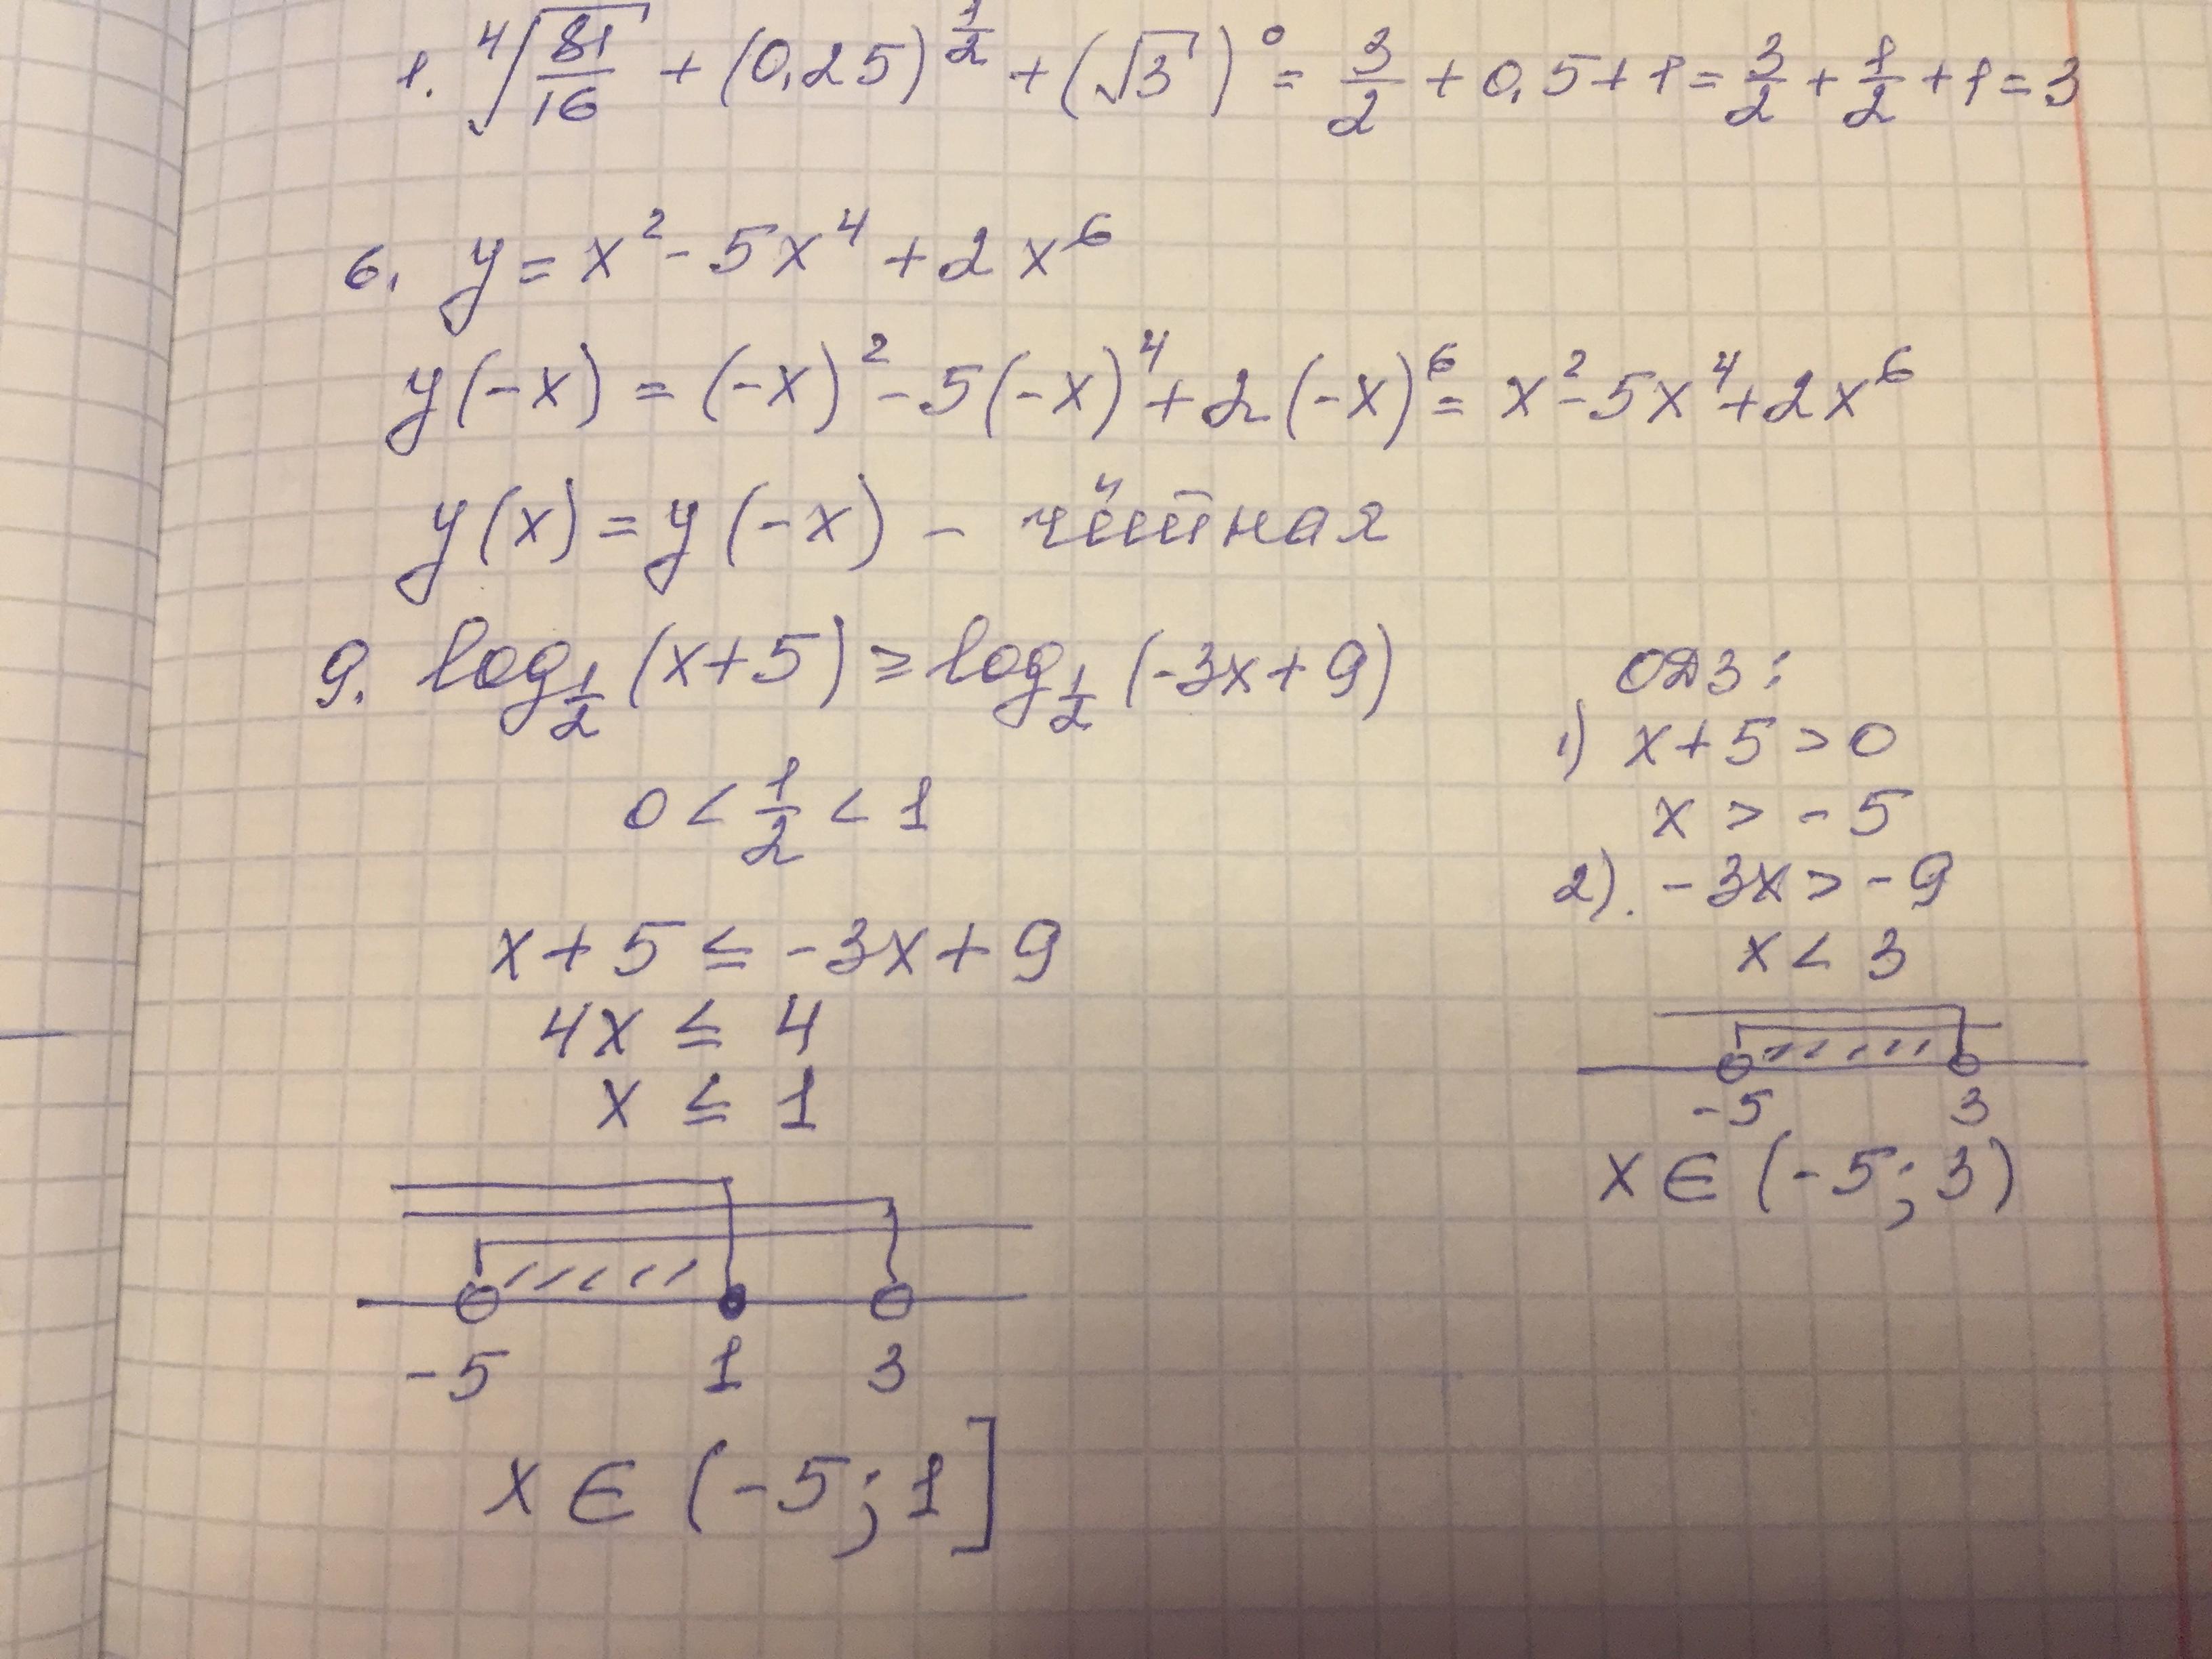 1. ⁴√(81/16) + (0,25)^(1/2) + (√3)⁰ = 3/2 + 0,5 + 1 = 3/2 + 1/2 + 1 = 3
6. y = x² - 5x⁴ + 2x⁶
y(-x) = (-x)² - 5(-x)⁴ + 2(-x)⁶ = x² - 5x⁴ + 2x⁶
y(x) = y(-x) - чётная
9. log_(1/2) (x+5) ≥ log_(1/2) (-3x+9)
0 < 1/2 < 1
x + 5 ≤ -3x + 9
4x ≤ 4
x ≤ 1
-5 1 3
x ∈ (-5; 1]
ОДЗ:
1) x + 5 > 0
x > -5
2). -3x > -9
x < 3
-5 3
x ∈ (-5; 3)